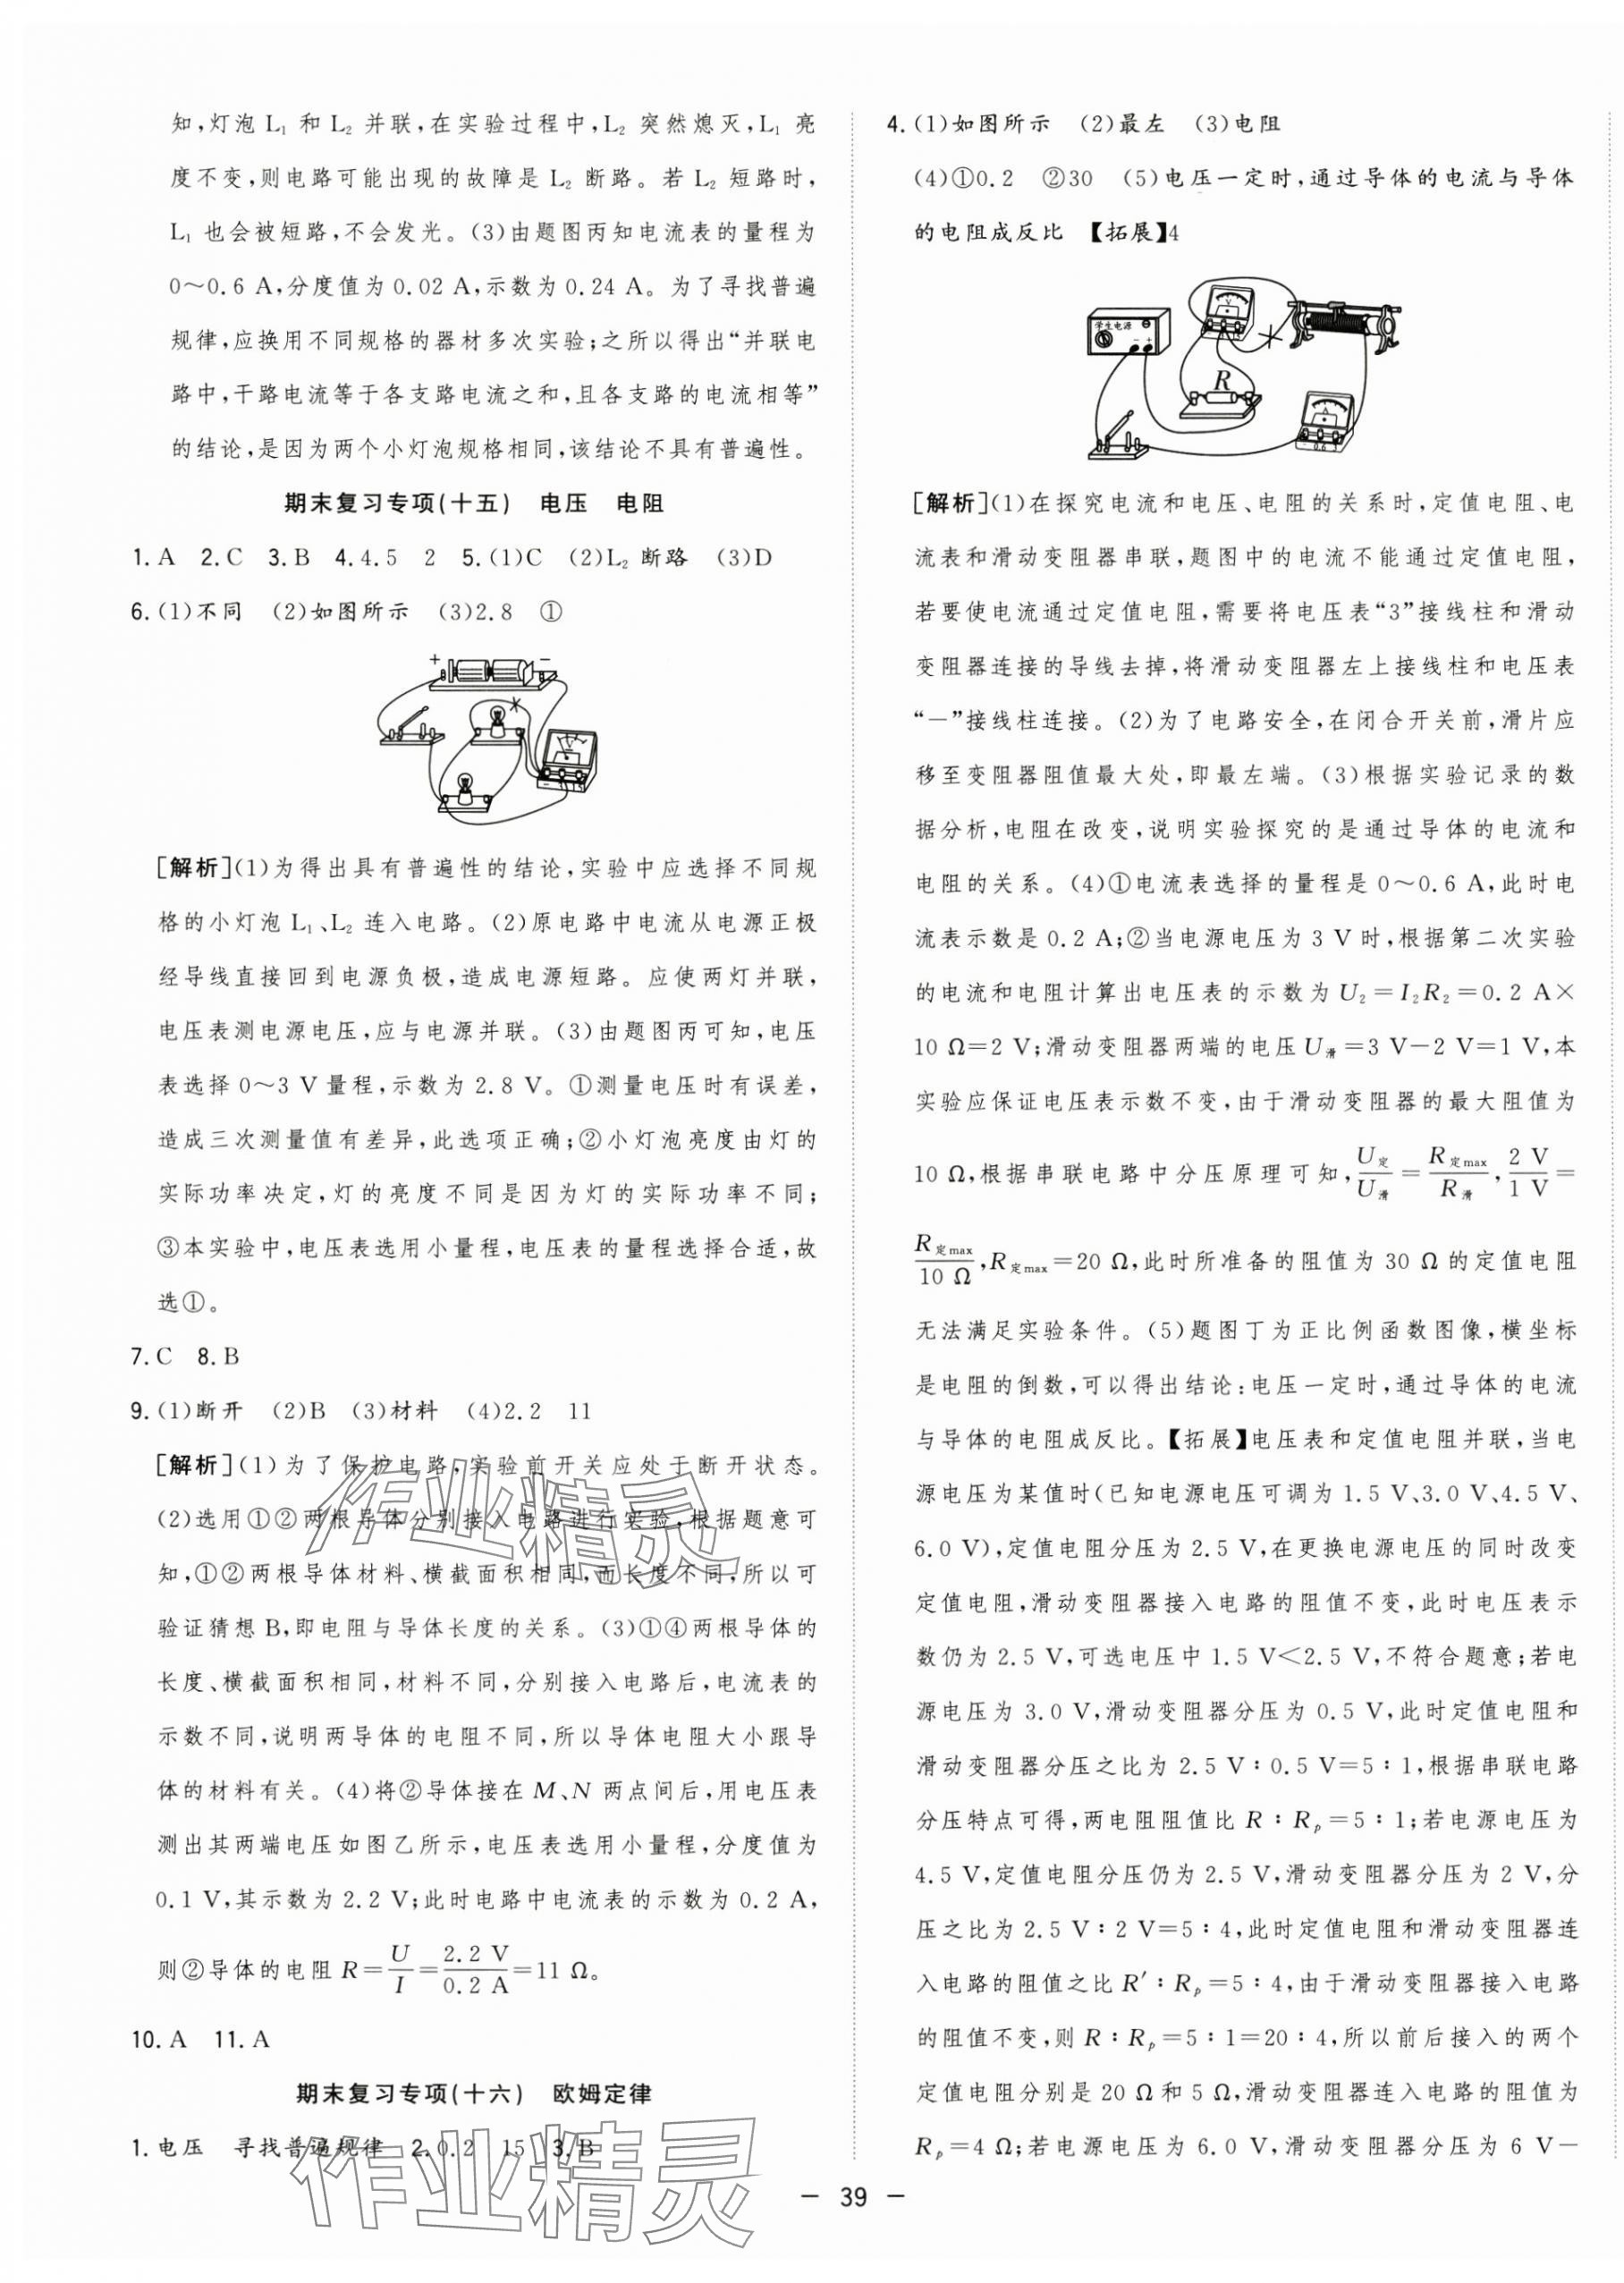 知,灯泡 L₁ 和 L₂ 并联,在实验过程中,L₂ 突然熄灭,L₁ 亮
度不变,则电路可能出现的故障是 L₂ 断路。若 L₂ 短路时,
L₁ 也会被短路,不会发光。(3)由题图丙知电流表的量程为
0～0.6 A,分度值为 0.02 A,示数为 0.24 A。为了寻找普遍
规律,应换用不同规格的器材多次实验;之所以得出“并联电
路中,干路电流等于各支路电流之和,且各支路的电流相等”
的结论,是因为两个小灯泡规格相同,该结论不具有普遍性。
期末复习专项(十五) 电压 电阻
1. A 2. C 3. B 4. 4.5 2 5. (1)C (2)L₂ 断路 (3)D
6. (1)不同 (2)如图所示 (3)2.8 ①
+ −
V
[解析](1)为得出具有普遍性的结论,实验中应选择不同规
格的小灯泡 L₁、L₂ 连入电路。(2)原电路中电流从电源正极
经导线直接回到电源负极,造成电源短路。应使两灯并联,
电压表测电源电压,应与电源并联。(3)由题图丙可知,电压
表选择 0～3 V 量程,示数为 2.8 V。①测量电压时有误差,
造成三次测量值有差异,此选项正确;②小灯泡亮度由灯的
实际功率决定,灯的亮度不同是因为灯的实际功率不同;
③本实验中,电压表选用小量程,电压表的量程选择合适,故
选①。
7. C 8. B
9. (1)断开 (2)B (3)材料 (4)2.2 11
[解析](1)为了保护电路,实验前开关应处于断开状态。
(2)选用①②两根导体分别接入电路进行实验,根据题意可
知,①②两根导体材料、横截面积相同,而长度不同,所以可
验证猜想 B,即电阻与导体长度的关系。(3)①④两根导体的
长度、横截面积相同,材料不同,分别接入电路后,电流表的
示数不同,说明两导体的电阻不同,所以导体电阻大小跟导
体的材料有关。(4)将②导体接在 M、N 两点间后,用电压表
测出其两端电压如图乙所示,电压表选用小量程,分度值为
0.1 V,其示数为 2.2 V;此时电路中电流表的示数为 0.2 A,
则②导体的电阻 R=U/I=2.2 V/0.2 A=11 Ω。
10. A 11. A
期末复习专项(十六) 欧姆定律
1. 电压 寻找普遍规律 2. 0.2 15 3. B
4. (1)如图所示 (2)最左 (3)电阻
(4)①0.2 ②30 (5)电压一定时,通过导体的电流与导体
的电阻成反比 【拓展】4
学生电源
V
R
A
0.6
[解析](1)在探究电流和电压、电阻的关系时,定值电阻、电
流表和滑动变阻器串联,题图中的电流不能通过定值电阻,
若要使电流通过定值电阻,需要将电压表“3”接线柱和滑动
变阻器连接的导线去掉,将滑动变阻器左上接线柱和电压表
“—”接线柱连接。(2)为了电路安全,在闭合开关前,滑片应
移至变阻器阻值最大处,即最左端。(3)根据实验记录的数
据分析,电阻在改变,说明实验探究的是通过导体的电流和
电阻的关系。(4)①电流表选择的量程是 0～0.6 A,此时电
流表示数是 0.2 A;②当电源电压为 3 V 时,根据第二次实验
的电流和电阻计算出电压表的示数为 U₂=I₂R₂=0.2 A×
10 Ω=2 V;滑动变阻器两端的电压 U滑=3 V−2 V=1 V,本
实验应保证电压表示数不变,由于滑动变阻器的最大阻值为
10 Ω,根据串联电路中分压原理可知,U定/U滑=R定max/R滑,2 V/1 V=
R定max/10 Ω,R定max=20 Ω,此时所准备的阻值为 30 Ω 的定值电阻
无法满足实验条件。(5)题图丁为正比例函数图像,横坐标
是电阻的倒数,可以得出结论:电压一定时,通过导体的电流
与导体的电阻成反比。【拓展】电压表和定值电阻并联,当电
源电压为某值时(已知电源电压可调为 1.5 V、3.0 V、4.5 V、
6.0 V),定值电阻分压为 2.5 V,在更换电源电压的同时改变
定值电阻,滑动变阻器接入电路的阻值不变,此时电压表示
数仍为 2.5 V,可选电压中 1.5 V＜2.5 V,不符合题意;若电
源电压为 3.0 V,滑动变阻器分压为 0.5 V,此时定值电阻和
滑动变阻器分压之比为 2.5 V∶0.5 V=5∶1,根据串联电路
分压特点可得,两电阻阻值比 R∶Rₚ=5∶1;若电源电压为
4.5 V,定值电阻分压仍为 2.5 V,滑动变阻器分压为 2 V,分
压之比为 2.5 V∶2 V=5∶4,此时定值电阻和滑动变阻器连
入电路的阻值之比 R′∶Rₚ=5∶4,由于滑动变阻器接入电路
的阻值不变,则 R∶Rₚ=5∶1=20∶4,所以前后接入的两个
定值电阻分别是 20 Ω 和 5 Ω,滑动变阻器连入电路的阻值为
Rₚ=4 Ω;若电源电压为 6.0 V,滑动变阻器分压为 6 V−
— 39 —
作业精灵
作业精灵